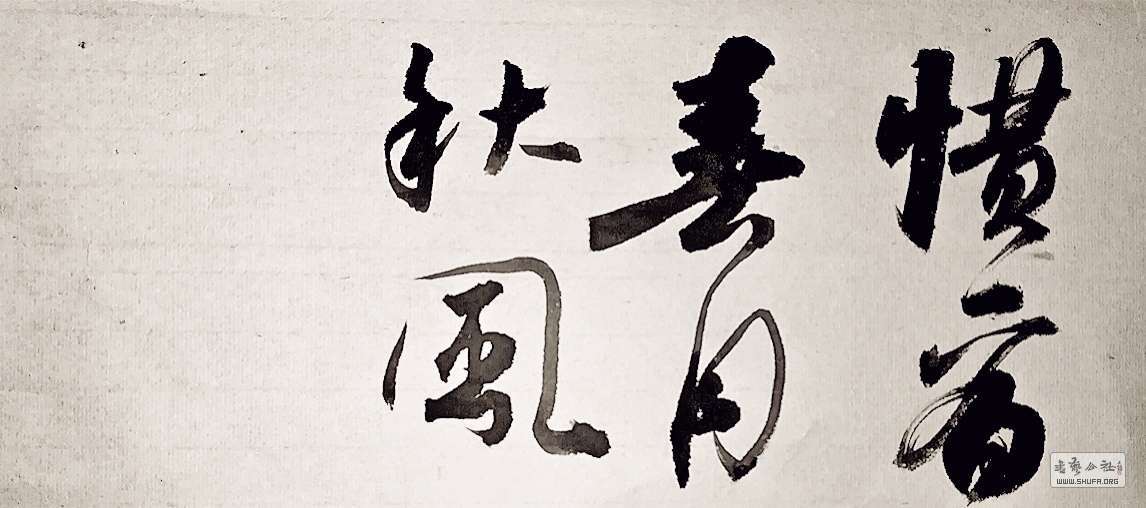 慣看
春月
秋風
書藝公社
WWW.SHUFA.ORG